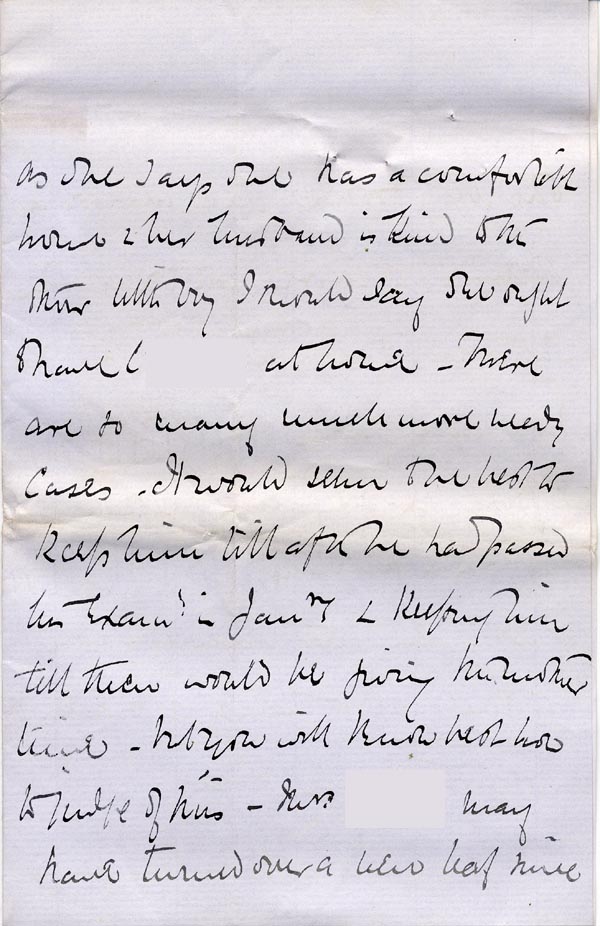 as she says she has a comfortable
home & her husband is kind to the
other little boy I should say she ought
to have C at home - There
are so many much more needy
Cases - It would seem to be best to
keep him till after he had passed
his Exam<sup>n</sup> in Jan<sup>ry</sup> & keeping him
till then would be giving his mother
time - but you will know best how
to judge of this - Mrs may
have turned over a new leaf since